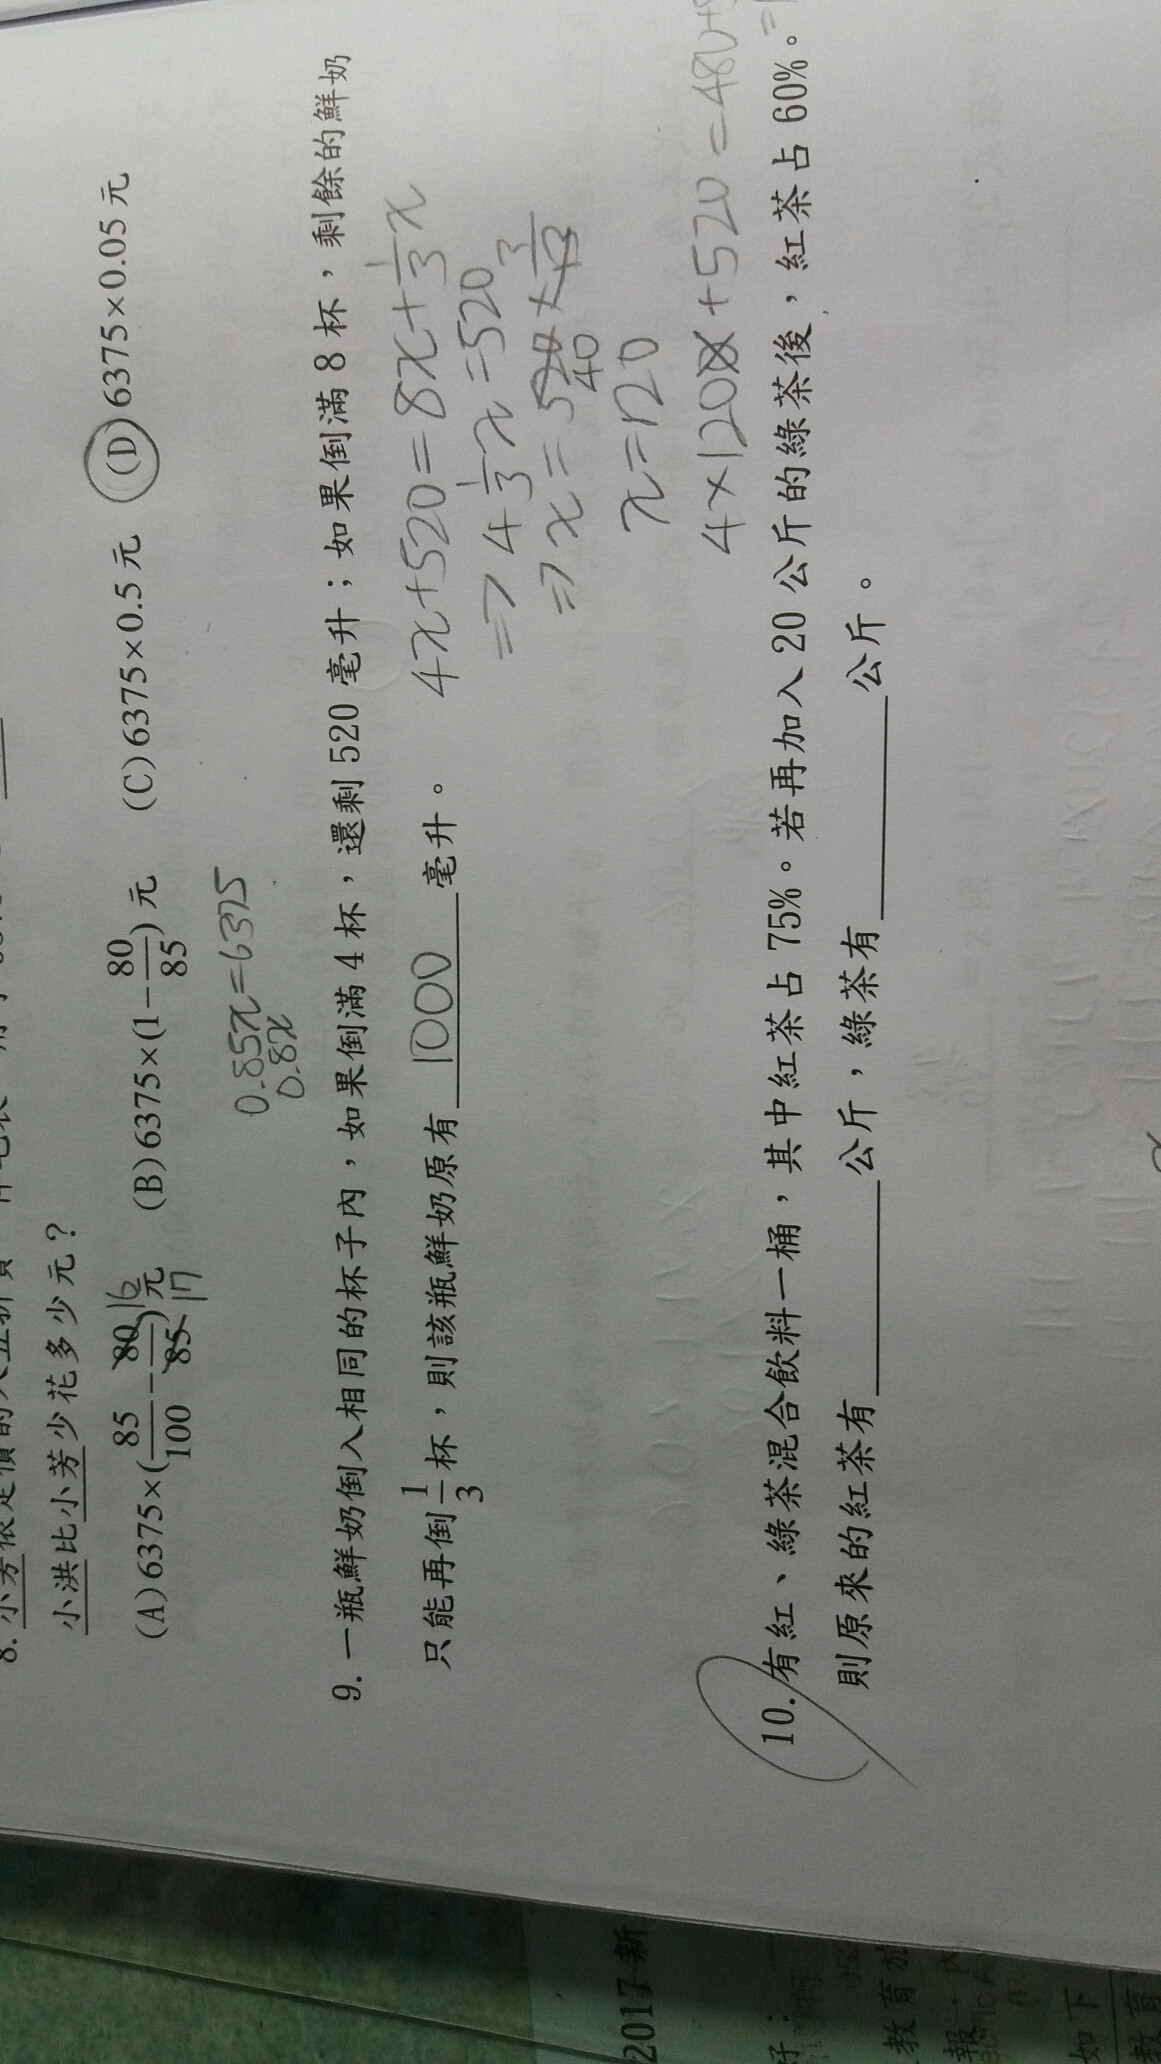 8. 小芳依定價的
小洪比小芳少花多少元？
(A)6375×(85/100－80/85)元 (B)6375×(1－80/85)元 (C)6375×0.5元 (D)6375×0.05元
16
17
0.85x=6375
0.8x
9. 一瓶鮮奶倒入相同的杯子內，如果倒滿4杯，還剩520毫升；如果倒滿8杯，剩餘的鮮奶
只能再倒1/3杯，則該瓶鮮奶原有1000毫升。
4x+520=8x+1/3x
=> 4 1/3x=520
=> x=520×3/13
40
x=120
4×120x+520=480+5
10. 有紅、綠茶混合飲料一桶，其中紅茶占75%。若再加入20公斤的綠茶後，紅茶占60%。
則原來的紅茶有＿＿＿公斤，綠茶有＿＿＿公斤。
2017 新
好：
教育
報
如下
教育